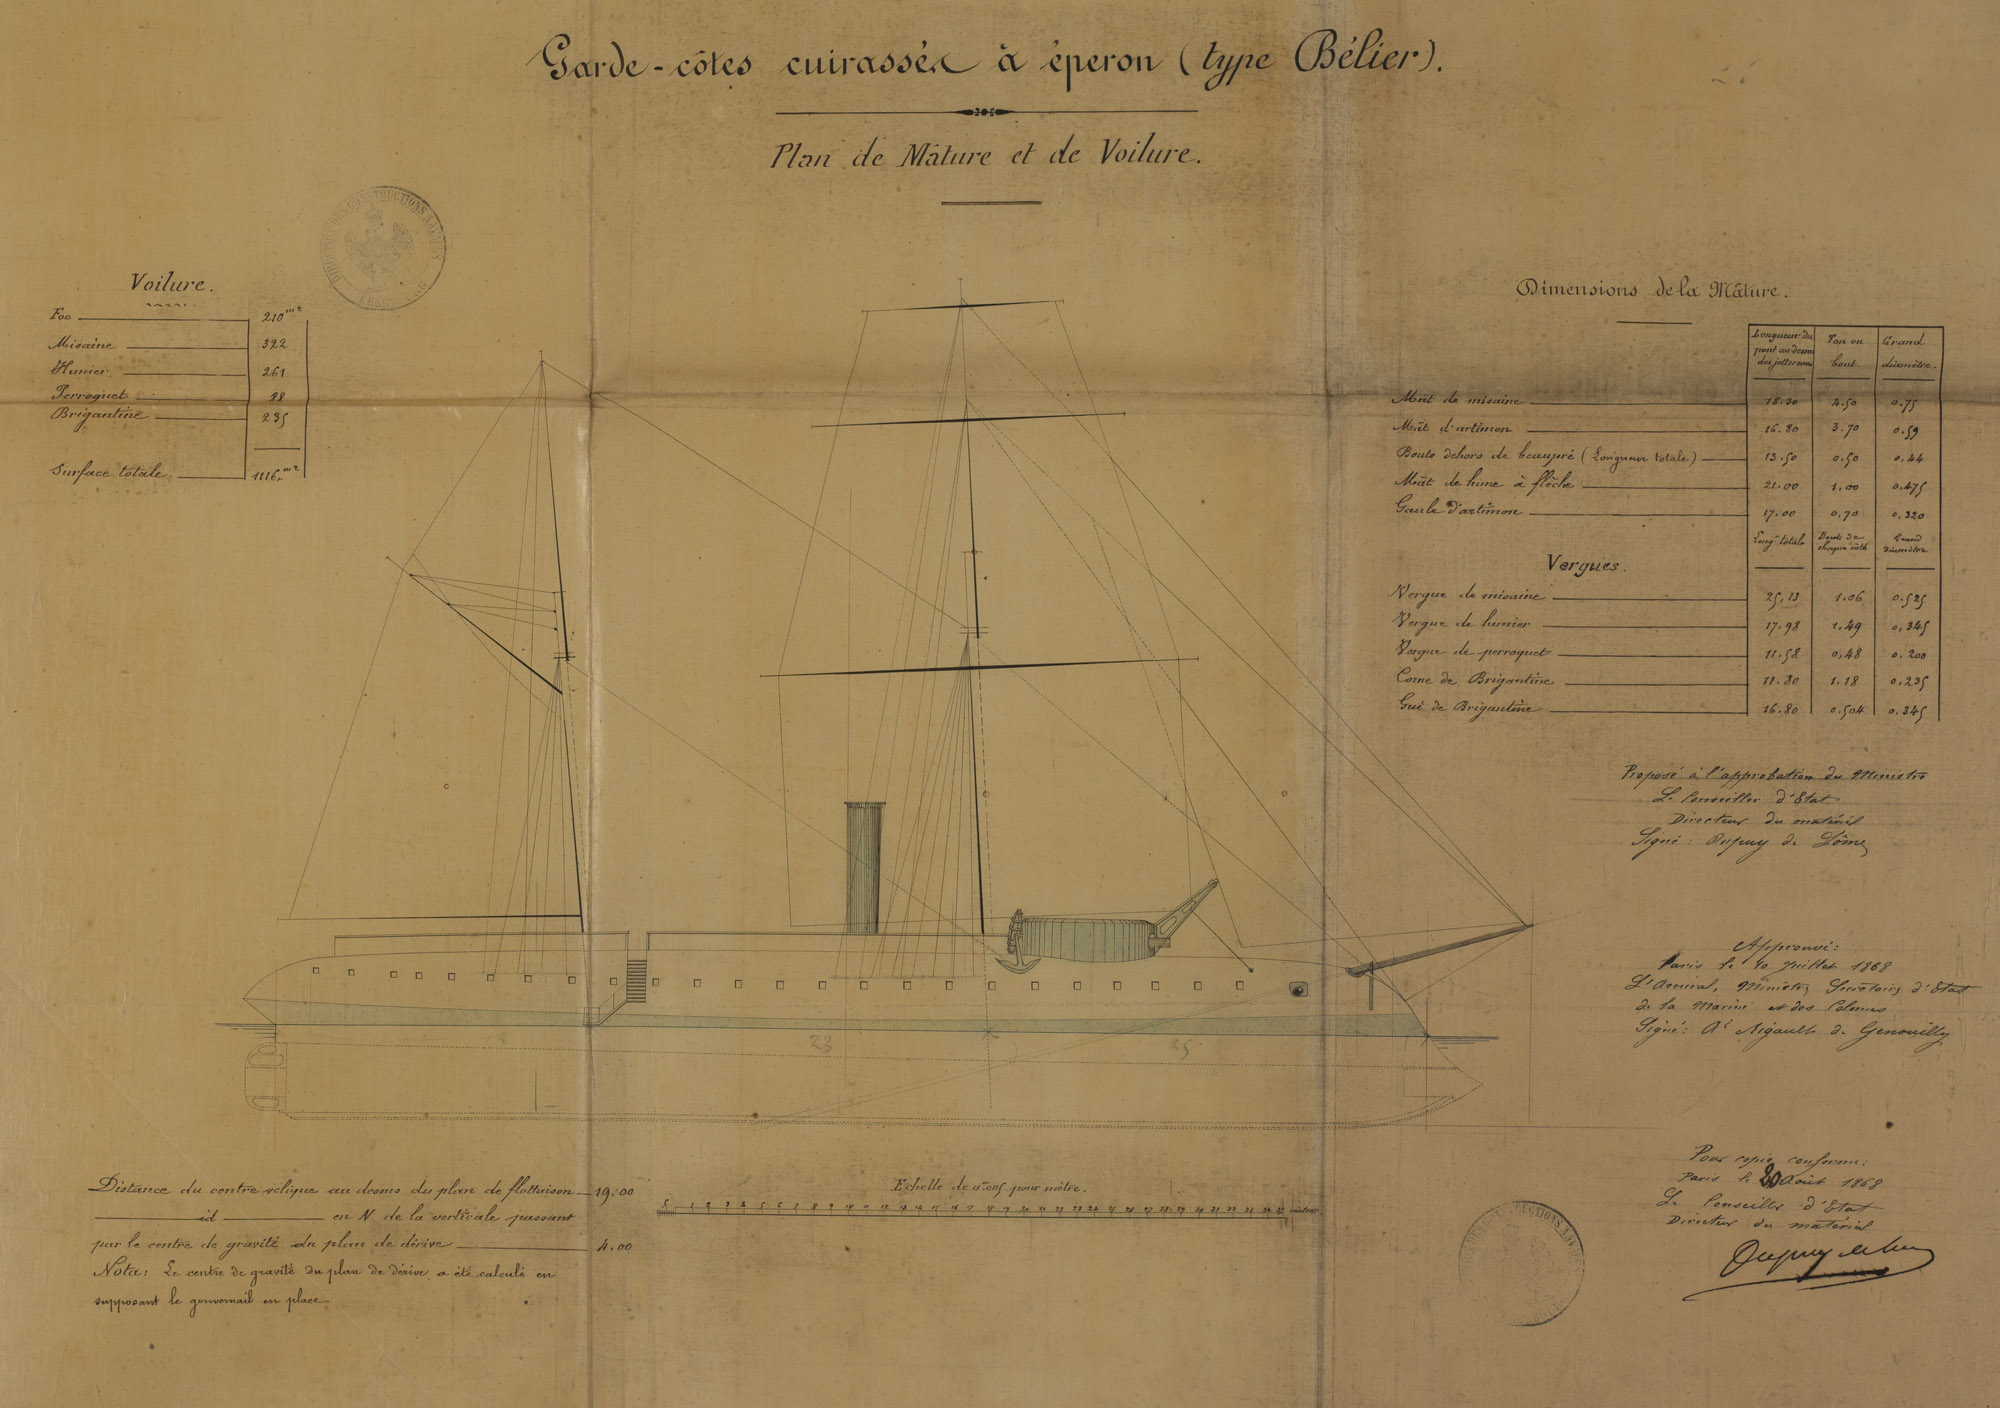 Garde-côtes cuirassés à éperon (type Bélier).
Plan de Mâture et de Voilure.
Voilure.
Foc 210 m²
Misaine 322
Hunier 261
Perroquet 88
Brigantine 235
Surface totale 1116 m²
Dimensions de la Mâture.
Longueur du pont au dessus des jottereaux
Ton ou bout.
Grand diamètre.
Mât de misaine 18.30 4.50 0.75
Mât d'artimon 16.80 3.70 0.59
Bouts dehors de beaupré (Longueur totale) 13.50 0.50 0.44
Mât de hune à flèche 21.00 1.00 0.475
Gaule d'artimon 17.00 0.70 0.320
Vergues.
Longr totale
Bouts de chaque côté
Grand diamètre
Vergue de misaine 25,13 1.06 0.525
Vergue de hunier 17.98 1.49 0.345
Vergue de perroquet 11.58 0.48 0.200
Corne de Brigantine 11.80 1.18 0.235
Gui de Brigantine 16.80 0.504 0.345
Proposé à l'approbation du Ministre
Le Conseiller d'Etat
Directeur du matériel
Signé: Dupuy de Lôme
Approuvé:
Paris le 10 Juillet 1868
L'Amiral, Ministre Secrétaire d'Etat
de la Marine et des Colonies
Signé: Al Rigault de Genouilly
23 25
Pour copie conforme:
Paris le 20 Août 1868
Le Conseiller d'Etat
Directeur du matériel
Dupuy de Lôme
Distance du centre vélique au dessus du plan de flottaison 19.00
id en N de la verticale passant
par le centre de gravité du plan de dérive 4.00
Nota: Le centre de gravité du plan de dérive a été calculé en
supposant le gouvernail en place
Echelle de 0m005 pour mètre.